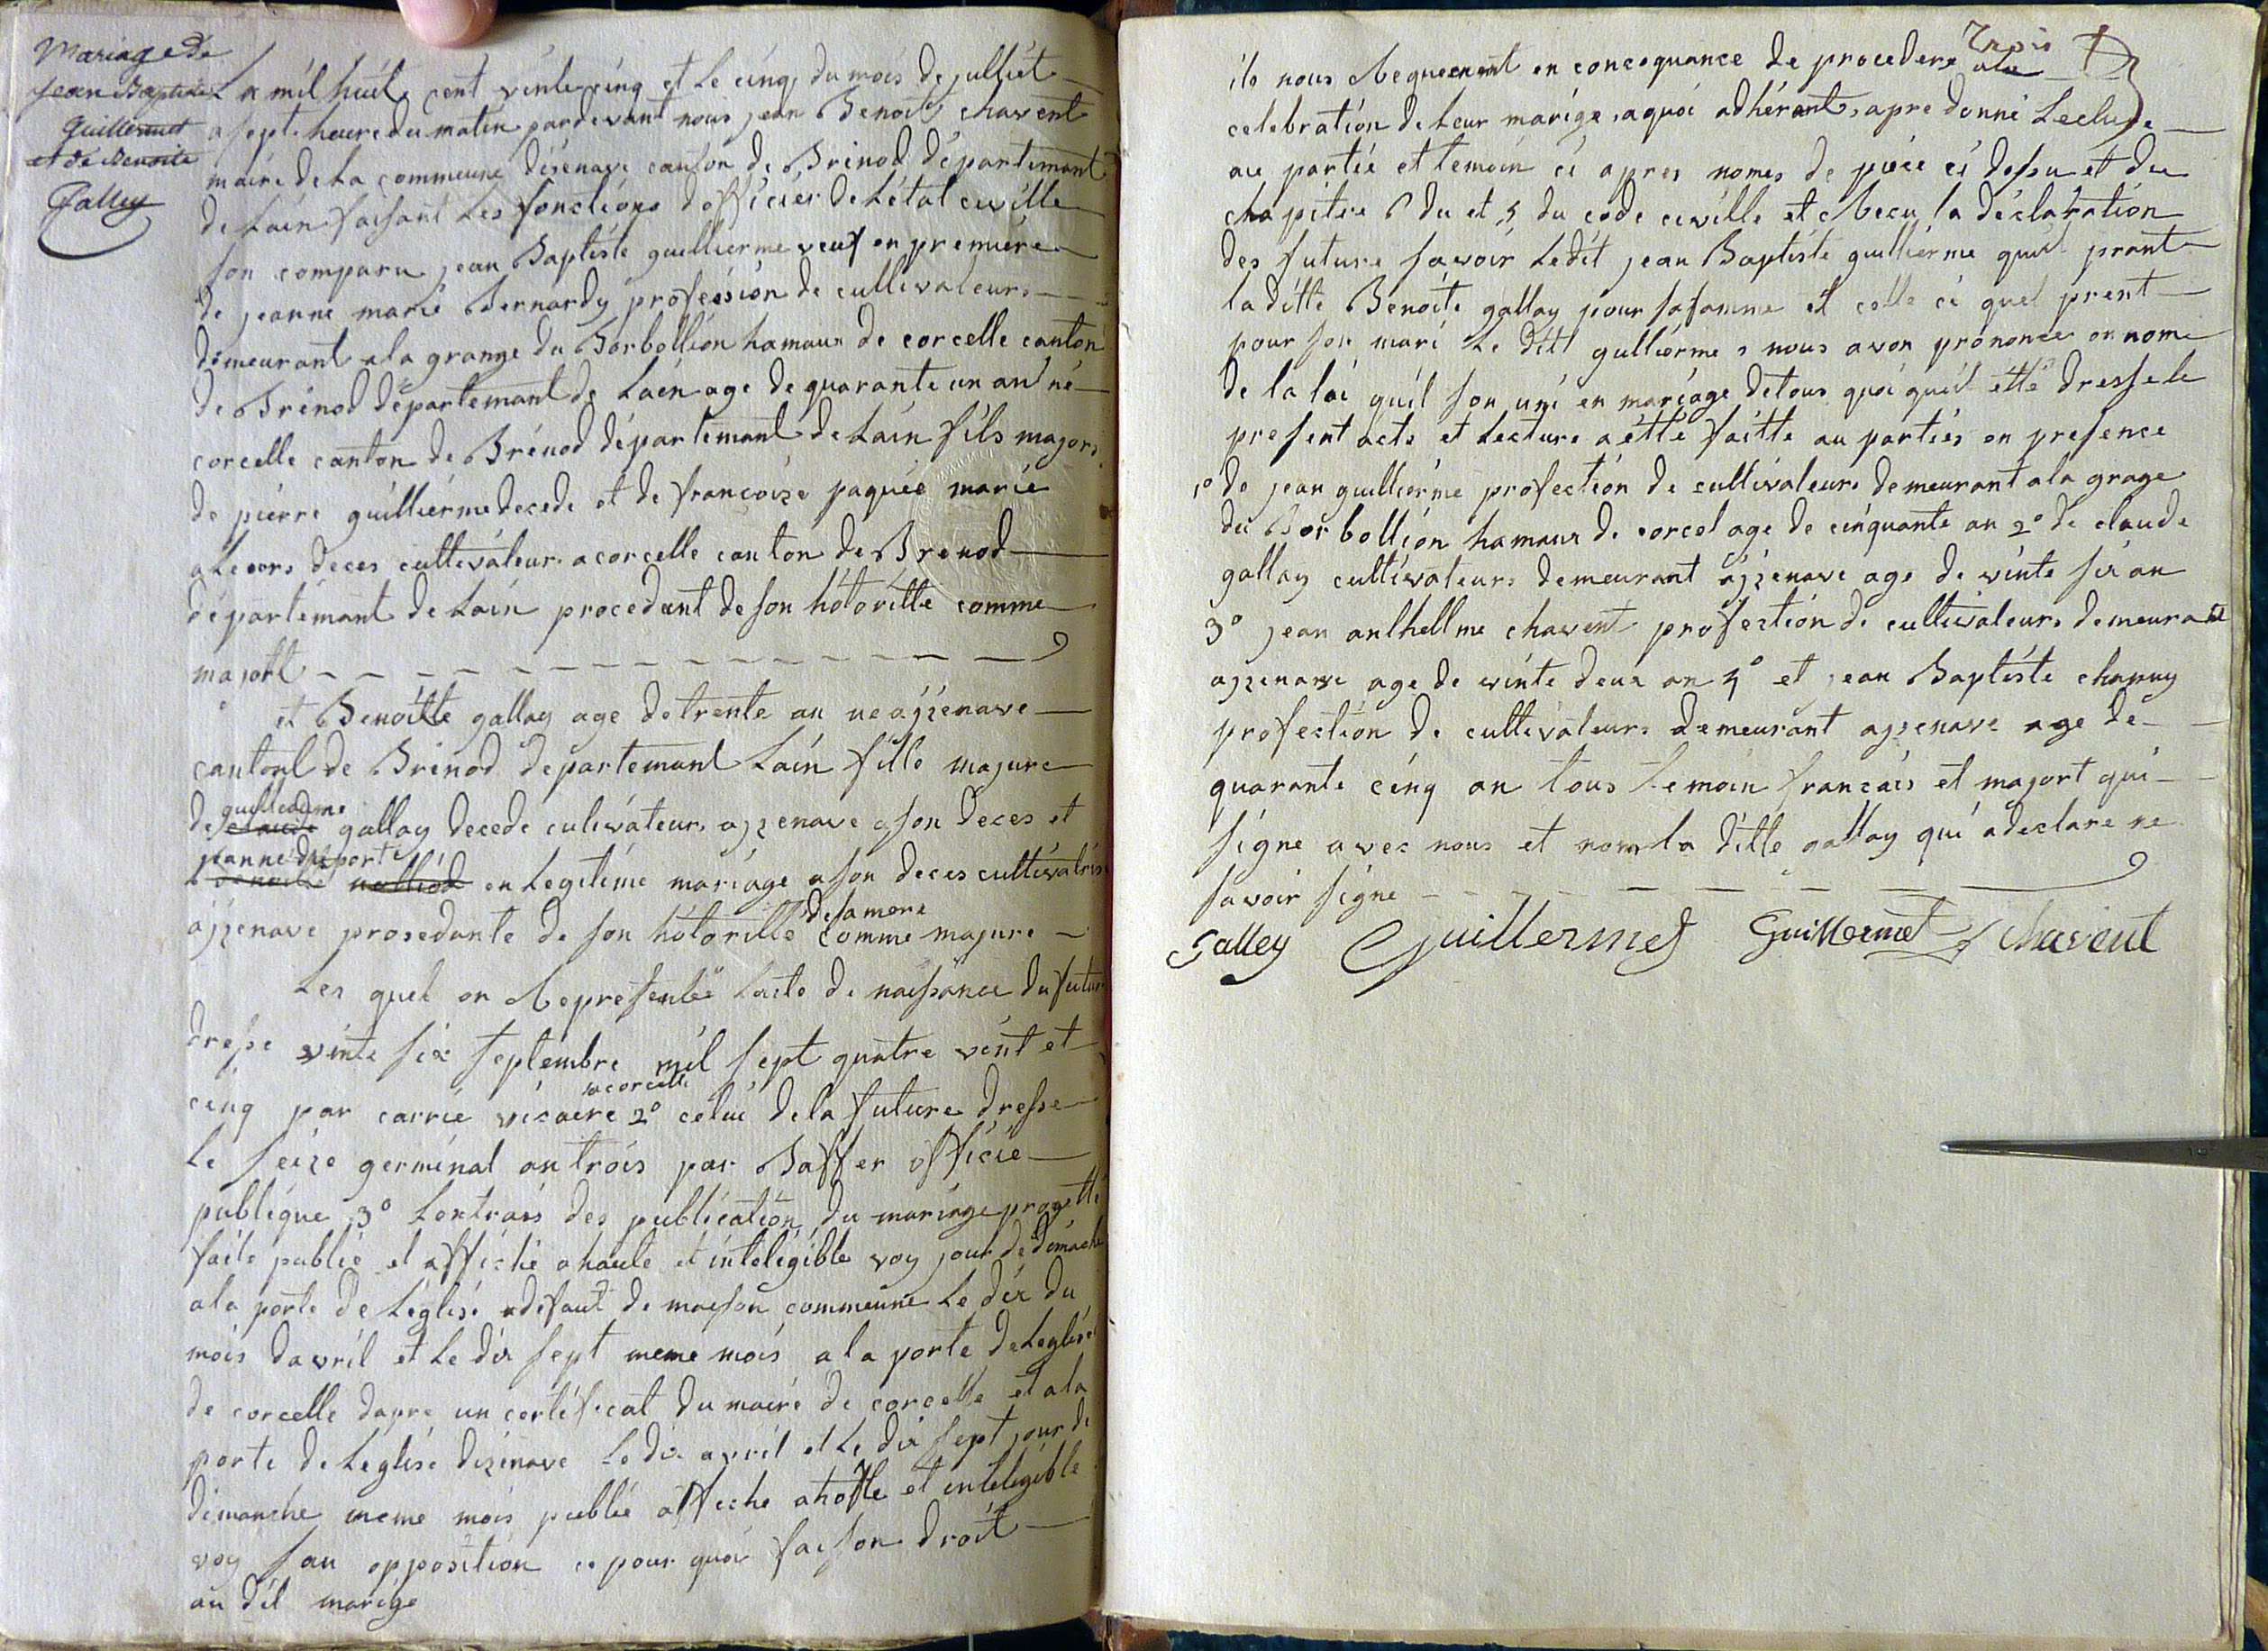 Mariage de
jean Baptiste
Guillermet
et de Benoite
Galley
L'a mil huit cent vinte cinq et Le cinq du mois de julliet
a sept heure du matin pardevant nous jean Benoit chavent
maire de La commeune désenave canton de Brénod départemant
de Lain faisant Les fonctions dofficier de L'état civille
son comparu jean Baptiste guillierme veuf en premiére
de jeanne marie Bernardy profession de cultivateurs
demeurant a la grange du Borbollion hamaux de corcelle canton
de Brénod départemant de Lain age de quarante un an né
corcelle canton de Brénod départemant de Lain fils majors
de piérre guilliérme decede et de francoise paquée marié
a Leors deces cultivateurs a corcelle canton de Brenod
départemant de Lain procedant de son hotorillé comme
majort
et Benoitte gallay age de trente an né ajzenave
cantont de Brénod departemant Lain fille majure
de guillaume claude gallay decede culivateurs ajzenave a son deces et
jeanne duport Benoite nalliod en Legitime mariage a son deces cultivatris
ajzenave prosedante de son hotorillé de sa mere comme majure
Les quel on Representée Lacte de naissance du futur
dresse vinte six septembre mil sept quatre vint et
cinq par carrié vicaire a corcelle 2° celui de la future dresse
Le seize germinal an trois par Baffer officié
publique 3° Lextrais des publication du mariage progetté
faite publié et affiché a haute et inteligible voy jour de dimache
a la porte de Léglise a défaut de maison commeune Le dix du
mois davril et Le dix sept meme mois a la porte de Leglise
de corcelle dapre un certificat du maire de corcelle et a la
porte de Leglise dizenave Le dix avril et Le dix sept jour de
dimanche meme mois publié affiche a hotte et inteligible
voy san opposition ce pour quoi faison droit
au dit marige
ils nous Requerent en consequance de procedere
Trois
a la
celebration de Leur marige, aquoi adhérant, apre donné Lecture
au partie et temoin ci apres nomes de piéce ci dessu et du
chapitre 6 du et 5 du code civille et Recu la déclaration
des future savoir Ledit jean Baptiste guilliérme quil prant
la ditte Benoite gallay pour sa famme et celle ci quel prent
pour son mari Le ditt gulliérme nous avon prononcé on nome
de la loi quil son uni en mariage de tous quoi quil etté dresse le
present acte et Lecture a étté faitte au partiés en presence
1° de jean guilliérme profection de cultivateurs demeurant a la grage
du Borbollion hamaux de corcel age de cinquante an 2° de claude
gallay cultivateurs demeurant ajzenave age de vinte six an
3° jean anthellme chavent profection de cultivateurs demeurant
ajzenave age de vinte deux an 4° et jean Baptiste chapuy
profection de cultivateurs demeurant ajzenave age de
quarante cinq an tous temoin francais et majort qui
signe avec nous et nom la ditte gallay qui a declare ne
savoir signe
Galley Guillermet Guillermet chavent